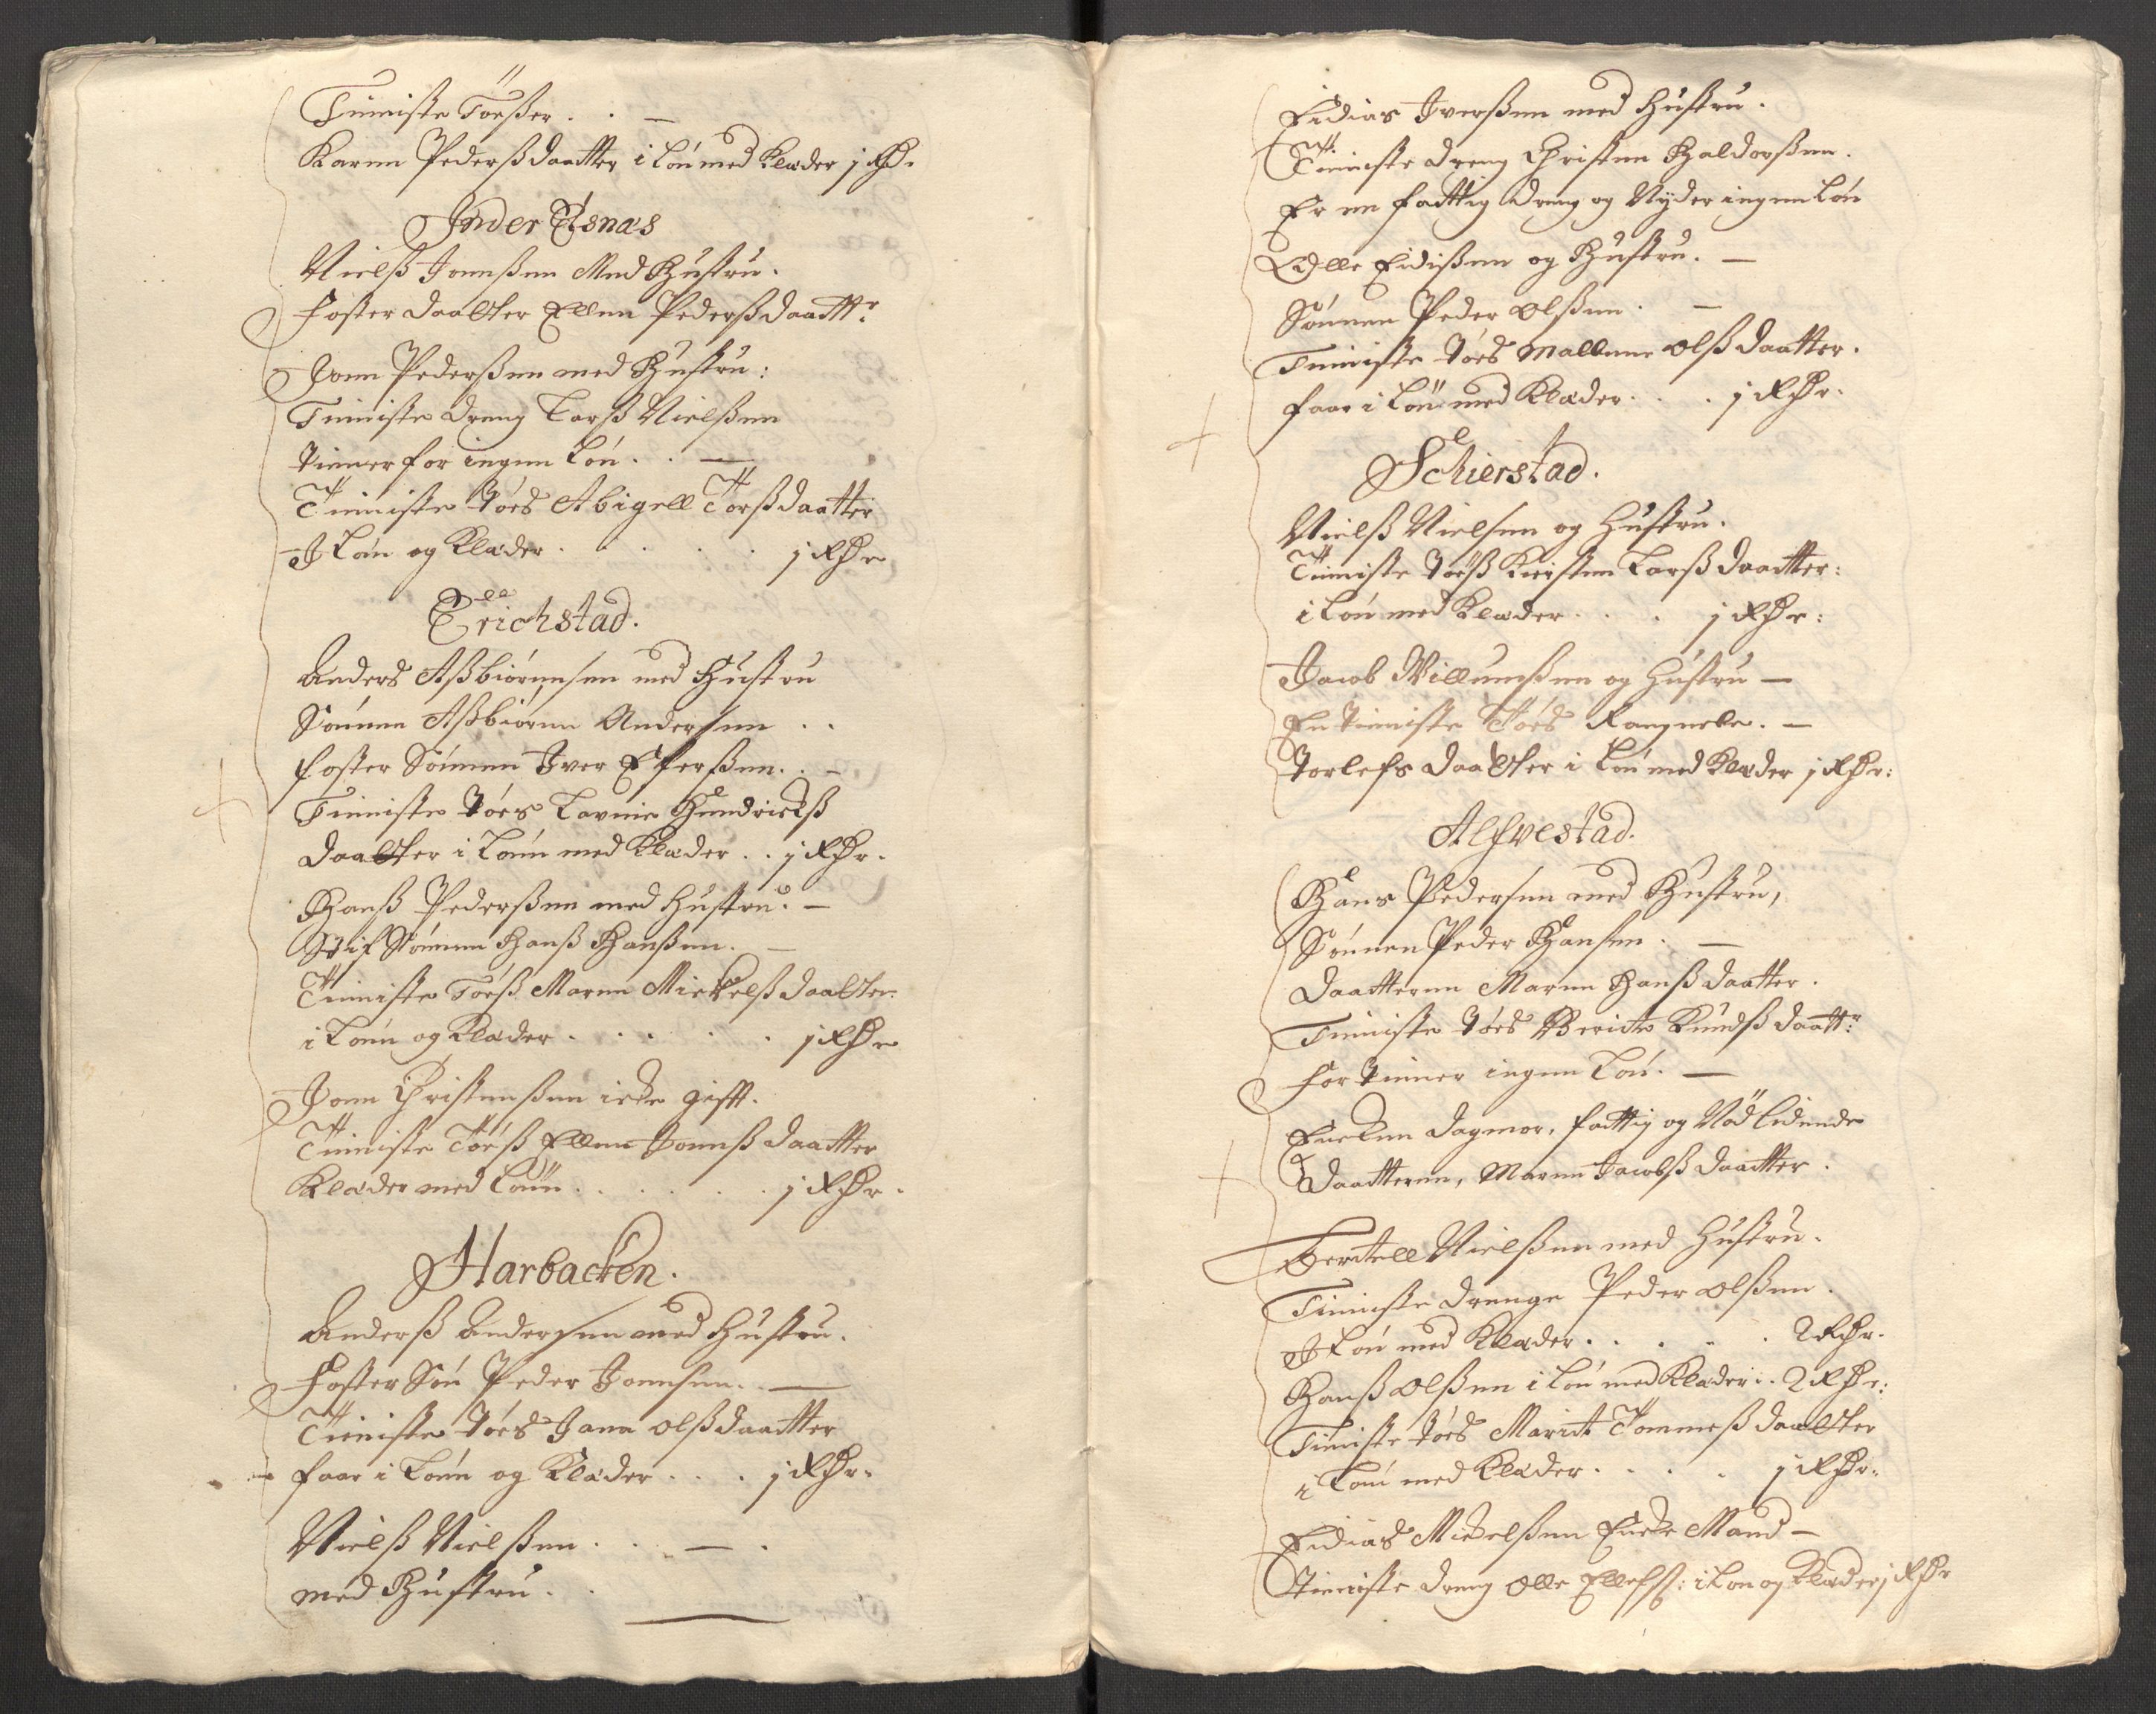 Tienniste Töeßer . . —
Karen Pederßdaatter i Lön med Klæder j Rdr.
Inder Esnæs
Nielß Jonnßen Med Hustru.
foster daatter Ellen Pederßdaattr:
Jonn Pederßen med Hustru:
Tienniste dreng Larß Nielßen
tienner for ingen Lön . . —
Tienniste töes Abigell Torßdaatter
I Lön og Klæder . . . . . j Rdr
Erichstad.
Anders Aßbiörnnsen med Hustru
Sönnen Aßbiörnn Andersen . .
foster Sönnen Iver Eferßen . . —
Tienniste töes Lavrine Hendrickß
daatter i Lönn med Klæder . . j Rdr.
Hanß Pederßen med Hustru. —
Stif Sönnen Hanß Hanßen. —
Tienniste Töeß Maren Mickelß daatter
i Lönn og Klæder . . . . . j Rdr
Jonn Christenßen icke gifft.
Tienniste Töeß Ellene Jonnß daatter
Klæder med Lönn . . . . . j Rdr.
Harbacken.
Anderß Andersen med Hustru.
foster Sön Peder Jonnsen. . —
Tienniste töes Jana olßdaatter
faar i Lönn og Klæder . . . j Rdr.
Nielß Nielßen . . — .
med Hustru . .
Eidias Iverßen med Hustru.
Tienniste dreng Christen Haldorßen.
Er en fattig dreng og Nyder ingen Lön
Olle Eidißen og Hustru. —
Sönnen Peder olßen . —
Tienniste töes Mallene olß daatter.
faar i Lön med Klæder . . . j Rdr.
Schierstad.
Nielß Nielsen og Hustru.
Tienniste töeß Kirsten Larß daatter:
i Lön med Klæder . . . j Rdr:
Jacob Willumßen og Hustru —
En tienniste Töes Rangnele. —
Torlefs daatter i Lön med Klæder j Rdr:
Alfvestad.
Hans Pedersen med Hustru,
Sönnen Peder Hansen . —
Daatteren Maren Hanß daatter.
Tienniste töes Berite Knudß daattr:
for tienner ingen Lön. —
Encken Dagmor, fattig og Nödlidende
Daatteren, Maren Jacobß daatter.
Bertell Nielßen med Hustru.
Tienniste drenge Peder olßen.
I Lön med Klæder . . . . . 2 Rdr.
Hanß olßen i Lön med Klæder . . 2 Rdr:
Tienniste töes Marit Tommeß daatter
i Lön med Klæder . . . . j Rdr.
Eidias Mickelßen Encke Mand —
tienniste dreng Olle Ellefß: i Lön og Klæder j Rdr